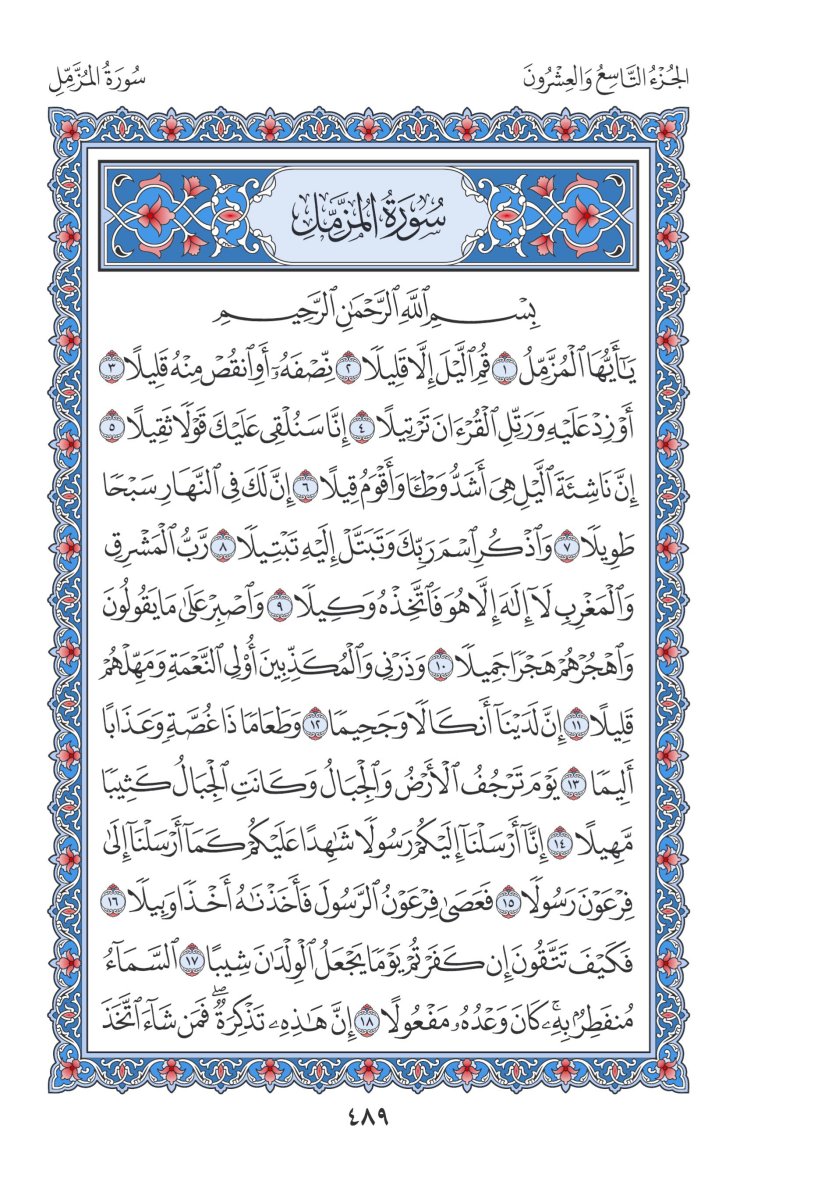 الجُزْءُ التَّاسِعُ وَالعِشْرُونَ
سُورَةُ المُزَّمِّلِ
سُورَةُ المُزَّمِّلِ
بِسْمِ ٱللَّهِ ٱلرَّحْمَٰنِ ٱلرَّحِيمِ
يَٰٓأَيُّهَا ٱلْمُزَّمِّلُ ١ قُمِ ٱلَّيْلَ إِلَّا قَلِيلًا ٢ نِّصْفَهُۥٓ أَوِ ٱنقُصْ مِنْهُ قَلِيلًا ٣
أَوْ زِدْ عَلَيْهِ وَرَتِّلِ ٱلْقُرْءَانَ تَرْتِيلًا ٤ إِنَّا سَنُلْقِى عَلَيْكَ قَوْلًا ثَقِيلًا ٥
إِنَّ نَاشِئَةَ ٱلَّيْلِ هِىَ أَشَدُّ وَطْـًٔا وَأَقْوَمُ قِيلًا ٦ إِنَّ لَكَ فِى ٱلنَّهَارِ سَبْحًا
طَوِيلًا ٧ وَٱذْكُرِ ٱسْمَ رَبِّكَ وَتَبَتَّلْ إِلَيْهِ تَبْتِيلًا ٨ رَّبُّ ٱلْمَشْرِقِ
وَٱلْمَغْرِبِ لَآ إِلَٰهَ إِلَّا هُوَ فَٱتَّخِذْهُ وَكِيلًا ٩ وَٱصْبِرْ عَلَىٰ مَا يَقُولُونَ
وَٱهْجُرْهُمْ هَجْرًا جَمِيلًا ١٠ وَذَرْنِى وَٱلْمُكَذِّبِينَ أُو۟لِى ٱلنَّعْمَةِ وَمَهِّلْهُمْ
قَلِيلًا ١١ إِنَّ لَدَيْنَآ أَنكَالًا وَجَحِيمًا ١٢ وَطَعَامًا ذَا غُصَّةٍ وَعَذَابًا
أَلِيمًا ١٣ يَوْمَ تَرْجُفُ ٱلْأَرْضُ وَٱلْجِبَالُ وَكَانَتِ ٱلْجِبَالُ كَثِيبًا
مَّهِيلًا ١٤ إِنَّآ أَرْسَلْنَآ إِلَيْكُمْ رَسُولًا شَٰهِدًا عَلَيْكُمْ كَمَآ أَرْسَلْنَآ إِلَىٰ
فِرْعَوْنَ رَسُولًا ١٥ فَعَصَىٰ فِرْعَوْنُ ٱلرَّسُولَ فَأَخَذْنَٰهُ أَخْذًا وَبِيلًا ١٦
فَكَيْفَ تَتَّقُونَ إِن كَفَرْتُمْ يَوْمًا يَجْعَلُ ٱلْوِلْدَٰنَ شِيبًا ١٧ ٱلسَّمَآءُ
مُنفَطِرٌۢ بِهِۦۚ كَانَ وَعْدُهُۥ مَفْعُولًا ١٨ إِنَّ هَٰذِهِۦ تَذْكِرَةٌۖ فَمَن شَآءَ ٱتَّخَذَ
٤٨٩